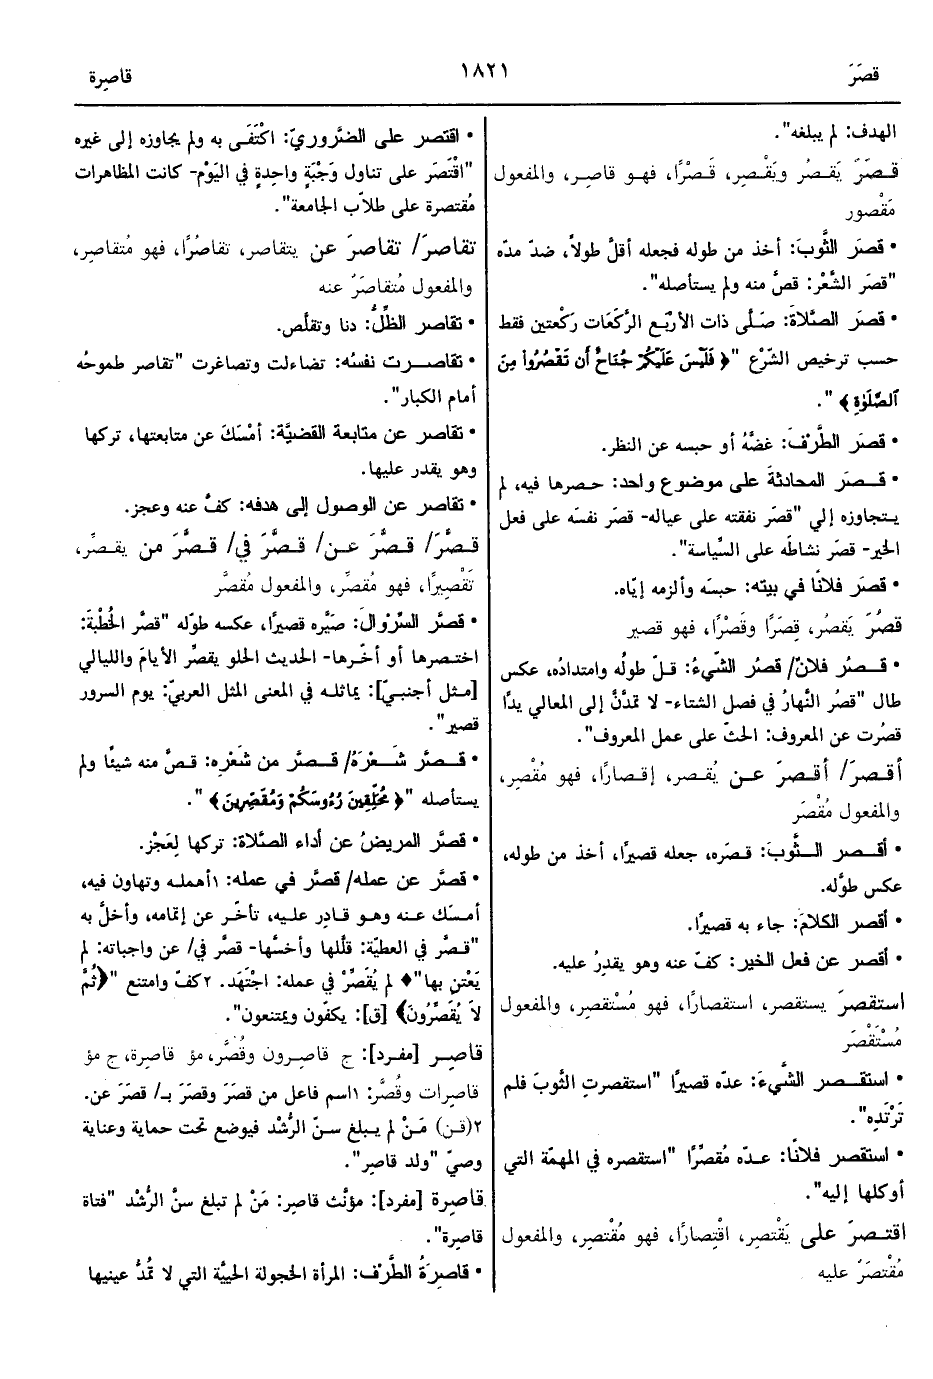 قصَرَ
١٨٢١
قاصِرة
الهدف: لم يبلغه".
قـصَرَ يَقصُر ويَقْصِر، قَـصْرًا، فهـو قاصِر، والمفعول
مَقْصور
• قصَر الثَّوبَ: أخذ من طوله فجعله أقلَّ طولاً، ضدّ مدّه
"قصَر الشَّعْر: قصَّ منه ولم يستأصله".
• قصَر الصَّلاةَ: صَلَّى ذات الأرْبَع الرَّكَعَات رَكْعتين فقط
حسب ترخيص الشّرْع "﴿ فَلَيْسَ عَلَيْكُمْ جُنَاحٌ أَن تَقْصُرُوا۟ مِنَ
ٱلصَّلَوٰةِ ﴾ ".
• قصَر الطَّرْفَ: غضَّهُ أو حبسه عن النظر.
• قـصَر المحادثةَ على موضوع واحد: حـصرها فيه، لم
يـتجاوزه إلي "قصَر نفقته على عياله- قصَر نفسَه على فعل
الخير- قصَر نشاطَه على السِّياسة".
• قصَر فلانًا في بيته: حبسَه وألزمه إيّاه.
قصُرَ يَقصُر، قِصَرًا وقَصْرًا، فهو قصير
• قـصُر فلانٌ/ قصُر الشّيءُ: قـلّ طولُه وامتدادُه، عكس
طال "قصُر النَّهارُ في فصل الشتاء- لا تمدَّنَّ إلى المعالي يدًا
قصُرت عن المعروف: الحثّ على عمل المعروف".
أقـصرَ/ أقـصرَ عـن يُقـصر، إقـصارًا، فهو مُقْصِر،
والمفعول مُقْصَر
• أقـصر الـثَّوبَ: قـصَره، جعله قصيرًا، أخذ من طوله،
عكس طوَّله.
• أقصر الكلامَ: جاء به قصيرًا.
• أقصر عن فعل الخير: كفّ عنه وهو يقدرُ عليه.
استقصرَ يستقصر، استقصارًا، فهو مُسْتقصِر، والمفعول
مُسْتَقْصَر
• استقـصر الشَّيءَ: عدّه قصيرًا "استقصرتِ الثّوبَ فلم
تَرْتَدِه".
• استقصر فلانًا: عـدّه مُقصِّرًا "استقصره في المهمّة التي
أوكلها إليه".
اقتـصرَ على يَقْتصِر، اقْتِصارًا، فهو مُقْتصِر، والمفعول
مُقْتصَرَ عليه
• اقتصر على الضَّروريّ: اكْتَفَى به ولم يجاوزه إلى غيره
"اقْتَصَرَ على تناول وَجْبَةٍ واحِدةٍ في اليَوْم- كانت المظاهرات
مُقتصرة على طلاّب الجامعة".
تقاصرَ/ تقاصرَ عن يتقاصر، تقاصُرًا، فهو مُتقاصِر،
والمفعول مُتقاصَرَ عنه
• تقاصر الظِّلُّ: دنا وتقلّص.
• تقاصـرت نفسُه: تضاءلت وتصاغرت "تقاصر طموحُه
أمام الكبار".
• تقاصر عن متابعة القضيَّة: أمْسَكَ عن متابعتها، تركها
وهو يقدر عليها.
• تقاصر عن الوصول إلى هدفه: كفّ عنه وعجز.
قـصَّرَ/ قـصَّرَ عـن/ قـصَّرَ في/ قـصَّرَ من يقـصِّر،
تَقْصِيرًا، فهو مُقصِّر، والمفعول مُقصَّر
• قصَّر السِّرْوالَ: صَيَّره قصيرًا، عكسه طوّله "قصَّر الخُطْبَةَ:
اختـصرها أو أخّـرها- الحديث الحلو يقصِّر الأيامَ والليالي
[مـثل أجنبـيّ]: يماثلـه في المعنى المثل العربيّ: يوم السرور
قصير".
• قـصَّر شَـعْرَهُ/ قـصَّر من شَعْرِه: قـصَّ منه شيئًا ولم
يستأصله "﴿ مُحَلِّقِينَ رُءُوسَكُمْ وَمُقَصِّرِينَ ﴾ ".
• قصَّر المريضُ عن أداء الصَّلاة: تركها لِعَجْزٍ.
• قصَّر عن عمله/ قصَّر في عمله: ١أهملـه وتهاون فيه،
أمسَك عـنه وهـو قـادر علـيه، تأخّـر عن إتمامه، وأخلَّ به
"قـصَّر في العطيّة: قلّلها وأخسَّها- قصَّر في/ عن واجباته: لم
يَعْتَنِ بها"♦ لم يُقَصِّرْ في عمله: اجتَهَد. ٢كفّ وامتنع "﴿ثُمَّ
لاَ يُقَصِّرُونَ﴾ [ق]: يكفّون ويمتنعون".
قاصِـر [مفـرد]: ج قاصِـرون وقُصَّر، مؤ قاصِرة، ج مؤ
قاصِرات وقُصَّر: ١اسم فاعل من قصَرَ وقصَرَ بـ/ قصَرَ عن.
٢(قـن) مَـنْ لم يـبلغ سـنّ الرُّشْد فيوضع تحت حماية وعناية
وصيّ "ولد قاصِر".
قاصِرة [مفرد]: مؤنَّث قاصِر: مَنْ لم تبلغ سنّ الرُّشْد "فتاة
قاصِرة".
• قاصِرَةُ الطَّرْف: المرأة الخجولة الحييَّة التي لا تمُدُّ عينيها